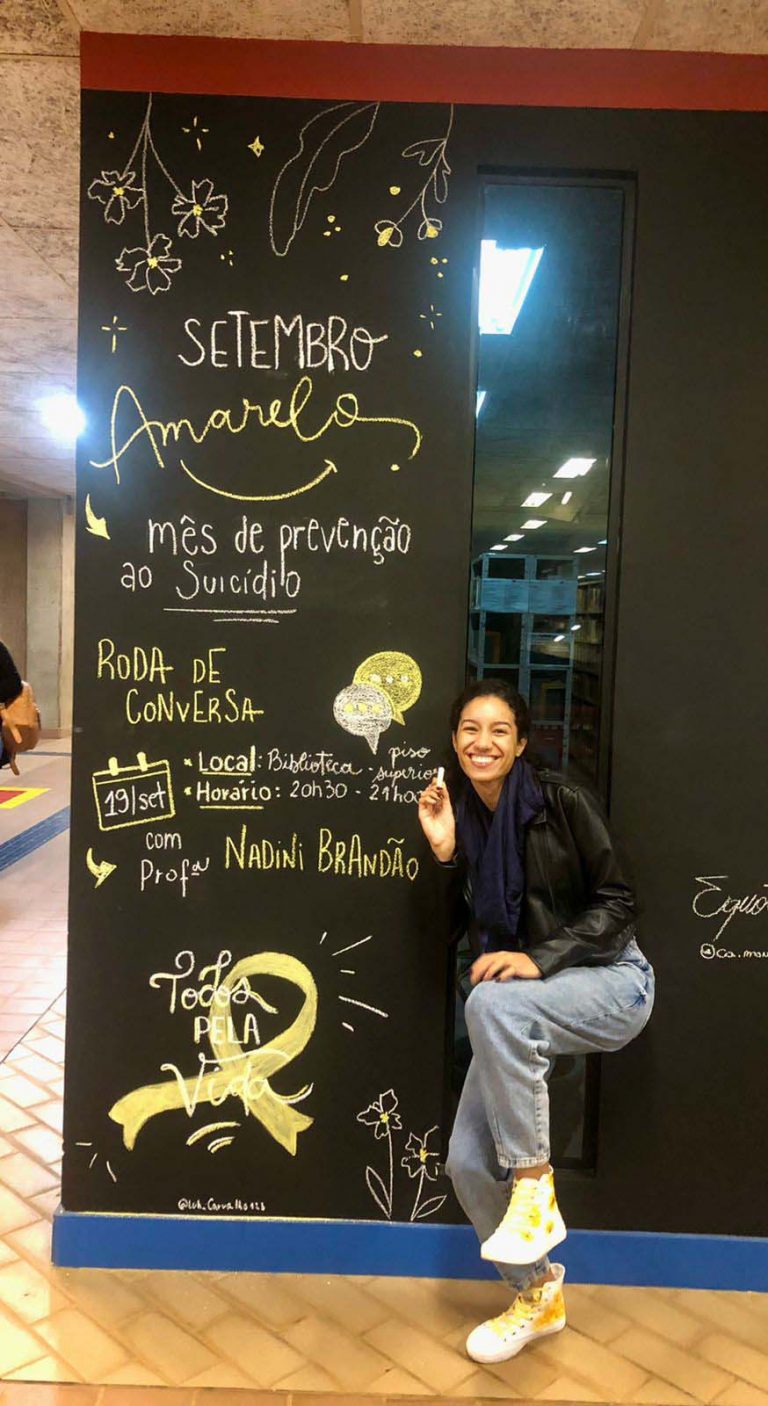 SETEMBRO
Amarelo
mês de prevenção
ao Suicídio
RODA DE
CONVERSA
19/set
* Local: Biblioteca - piso
superio
* Horário: 20h30 - 21h00
com
Profª NADINI BRANDÃO
Todos
PELA
Vida
@loh_Carvalho128